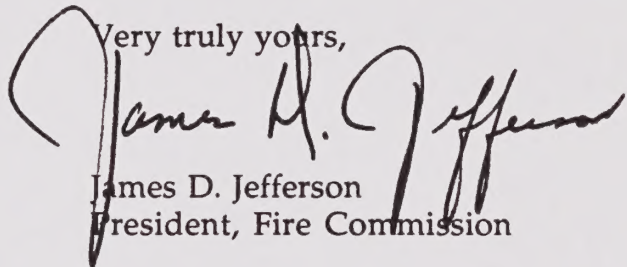 Very truly yours,
James D. Jefferson
James D. Jefferson
President, Fire Commission